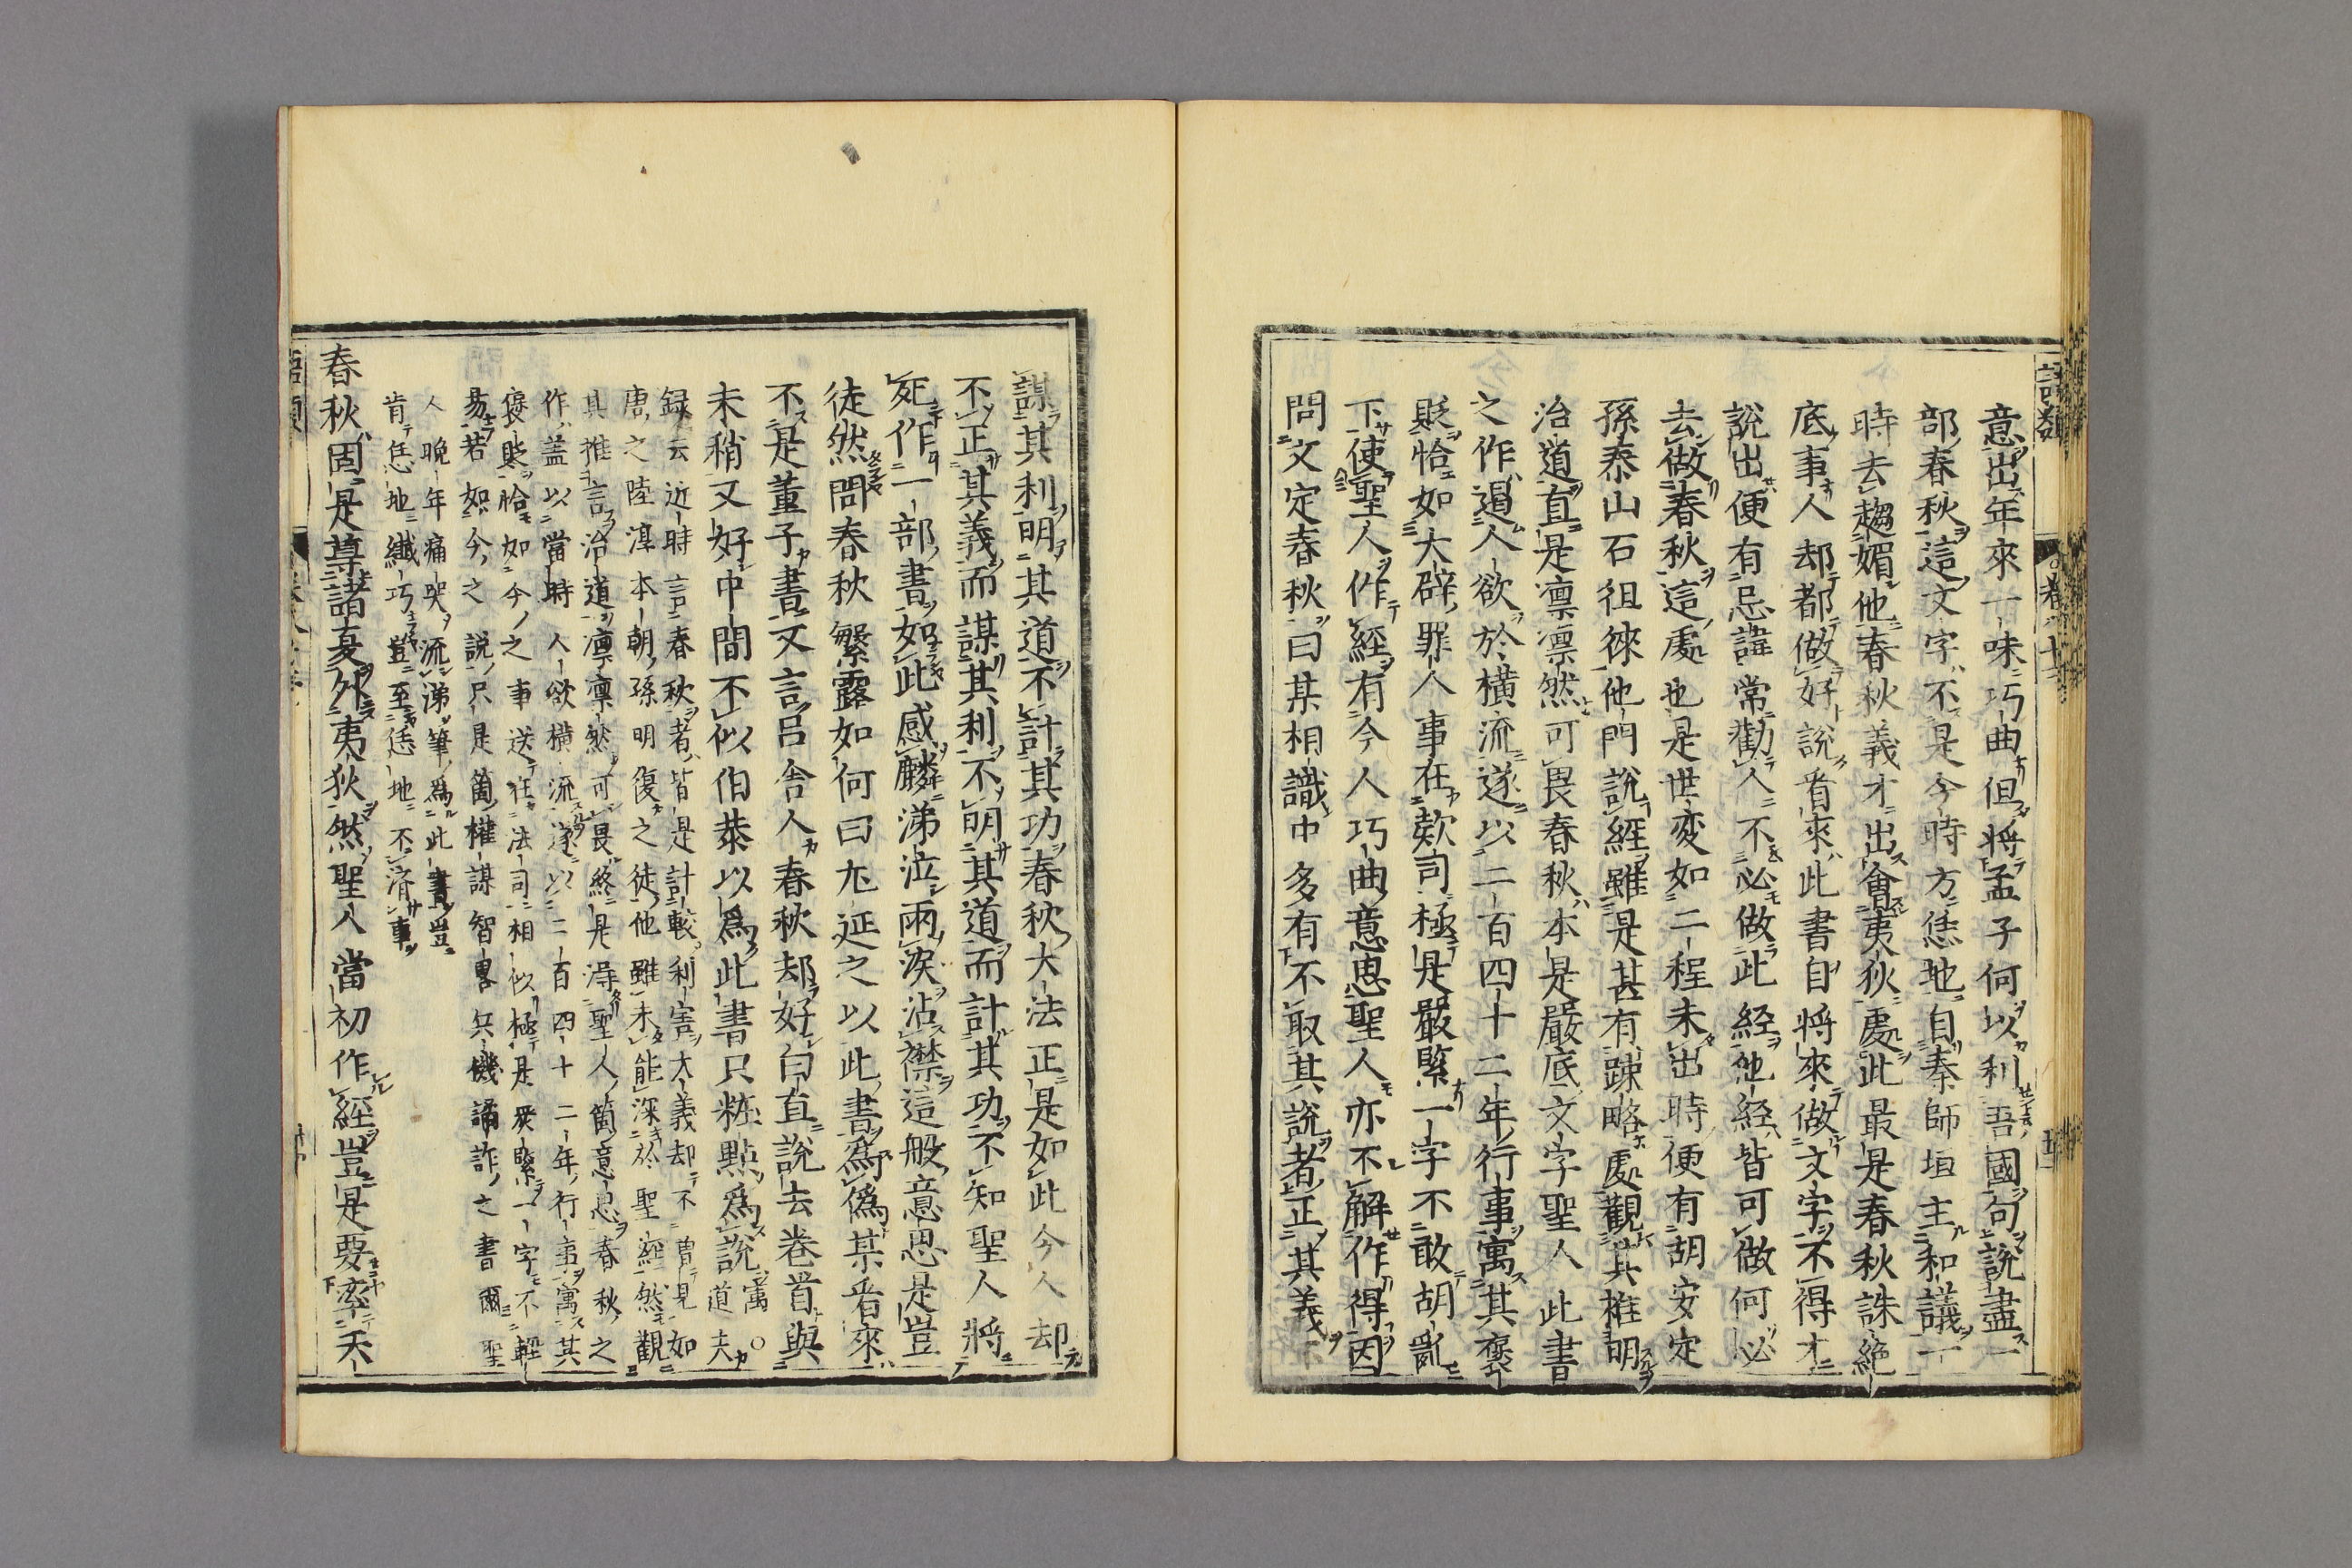 語類
卷八十三
意出年來一味巧曲但將孟子何以利吾國句說盡一
部春秋這文字不是今時方恁地自秦師垣主和議一
時去趨媚他春秋義才出會夷狄處此最是春秋誅絕
底事人却都做好說看來此書自將來做文字不得才
說出便有忌諱常勸人不必做此經他經皆可做何必
去做春秋這處也是世変如二程未出時便有胡安定
孫泰山石徂徠他門說經雖是甚有踈略處觀其推明
治道直是凛凛然可畏春秋本是嚴底文字聖人此書
之作遏人欲於橫流遂以二百四十二年行事寓其褒
貶恰如大辟罪人事在欵司極是嚴緊一字不敢胡亂
下使聖人作經有今人巧曲意思聖人亦不解作得因
問文定春秋曰某相識中多有不取其說者正其義
謀其利明其道不計其功春秋大法正是如此今人却
不正其義而謀其利不明其道而計其功不知聖人將
死作一部書如此感麟涕泣兩淚沾襟這般意思是豈
徒然問春秋繁露如何曰尤延之以此書為偽某看來
不是董子書又言呂舍人春秋却好白直說去卷首與
未稍又好中間不似伯恭以爲此書只粧點爲說寓○道夫
録云近時言春秋者皆是計較利害大義却不曾見如
唐之陸淳本朝孫明復之徒他雖未能深於聖經然觀
其推言治道凛凛然可畏終是得聖人箇意思春秋之
作蓋以當時人欲橫流遂以二百四十二年行事寓其
褒貶恰如今之事送在法司相似極是嚴緊一字不輕
易若如今之説只是箇權謀智畧兵機譎詐之書爾聖
人晚年痛哭流涕筆爲此書豈
肯恁地纖巧豈至恁地不濟事
春秋固是尊諸夏外夷狄然聖人當初作經豈是要率天
語類